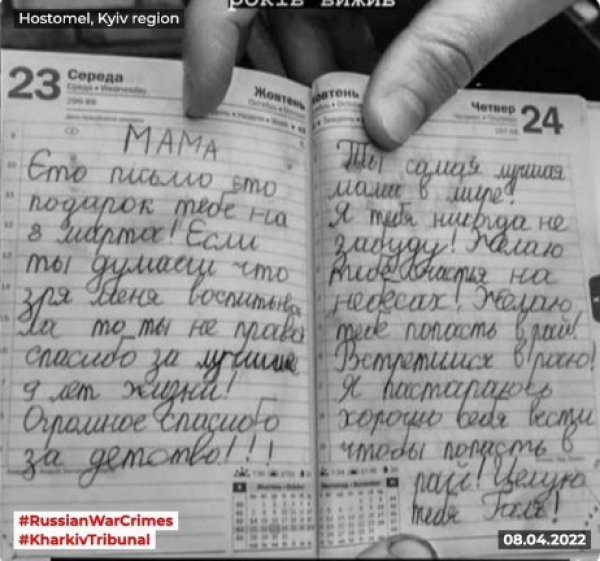 Hostomel, Kyiv region
років вижив
23 Середа
Среда • Wednesday
296-69
Жовтень
МАМА
Ето письмо это
подарок тебе на
8 марта! Если
ты думаеш что
зря меня воспитыва
ла то ты не права
спасибо за лучшие
9 лет жизни!
Огромное спасибо
за детство!!!
Жовтень
Четвер 24
297-68
Ты самая лучшая
мама в мире!
Я тебя никогда не
забуду! Желаю
тебе счастья на
небесах! Желаю
тебе попасть в рай!
Встретимся в раю!
Я постараюсь
хорошо себя вести
чтобы попасть в
рай! Целую
тебя
#RussianWarCrimes
#KharkivTribunal
08.04.2022